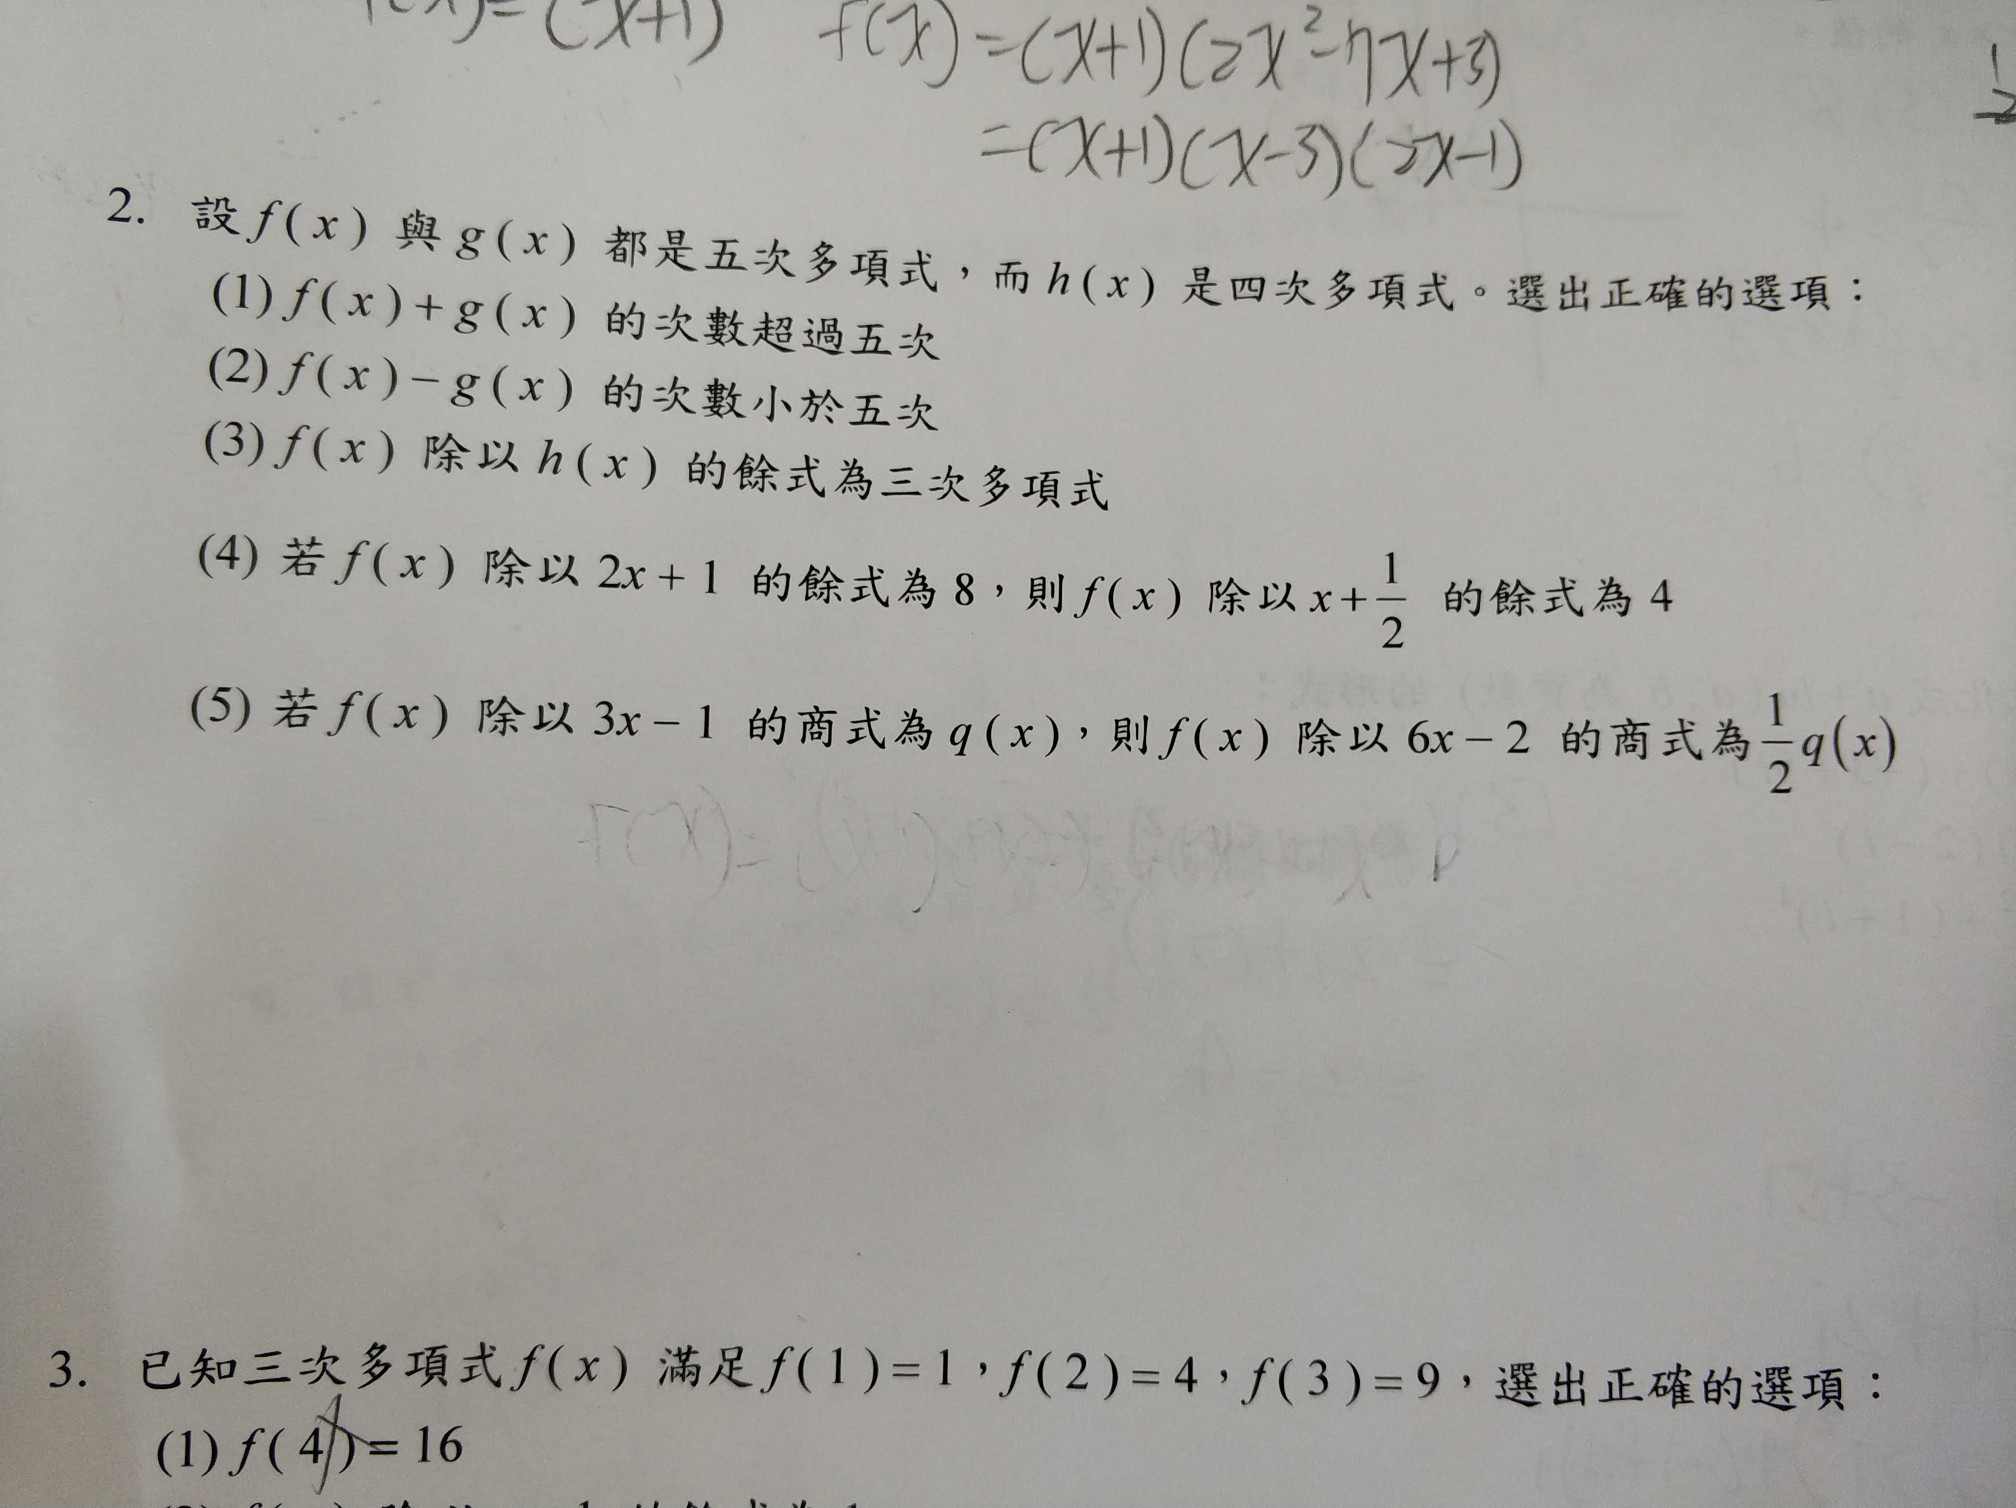 f(x)=(x+1)
f(x)=(x+1)(2x²-7x+3)
=(x+1)(x-3)(2x-1)
1
2
2. 設 f(x) 與 g(x) 都是五次多項式，而 h(x) 是四次多項式。選出正確的選項：
(1) f(x)+g(x) 的次數超過五次
(2) f(x)−g(x) 的次數小於五次
(3) f(x) 除以 h(x) 的餘式為三次多項式
(4) 若 f(x) 除以 2x+1 的餘式為 8，則 f(x) 除以 x+1/2 的餘式為 4
(5) 若 f(x) 除以 3x−1 的商式為 q(x)，則 f(x) 除以 6x−2 的商式為 1/2 q(x)
3. 已知三次多項式 f(x) 滿足 f(1)=1，f(2)=4，f(3)=9，選出正確的選項：
(1) f(4)=16